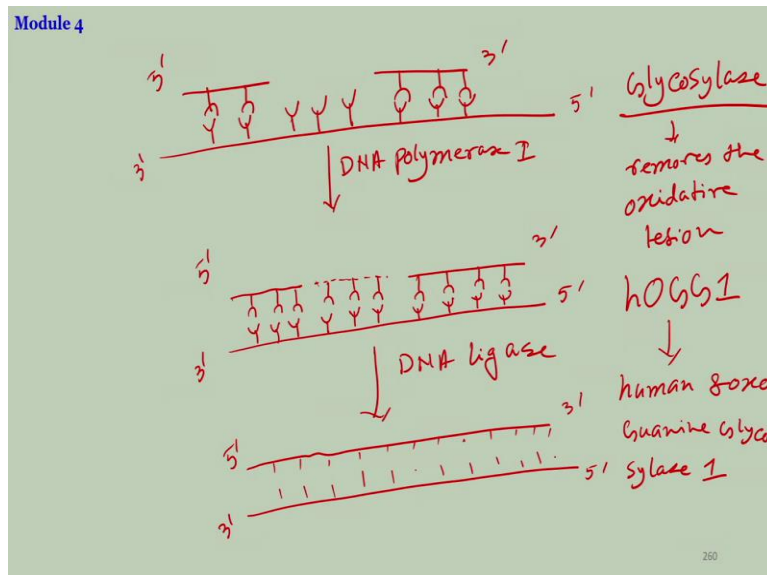 Module 4
5' 3'
3' 5'
DNA polymerase I
5' 3'
3' 5'
DNA ligase
5' 3'
3' 5'
Glycosylase
removes the
oxidative
lesion
hOGG1
human 8oxo
Guanine Glyco
sylase 1
260